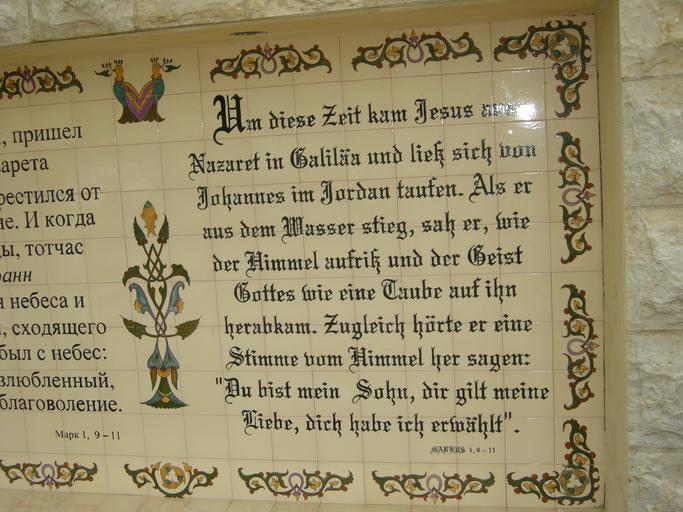 , пришел
арета
рестился от
не. И когда
ды, тотчас
оанн
я небеса и
, сходящего
был с небес:
злюбленный,
благоволение.
Марк 1, 9–11
Um diese Zeit kam Jesus aus
Nazaret in Galiläa und ließ sich von
Johannes im Jordan taufen. Als er
aus dem Wasser stieg, sah er, wie
der Himmel aufriß und der Geist
Gottes wie eine Taube auf ihn
herabkam. Zugleich hörte er eine
Stimme vom Himmel her sagen:
"Du bist mein Sohn, dir gilt meine
Liebe, dich habe ich erwählt".
MARKUS 1, 9-11